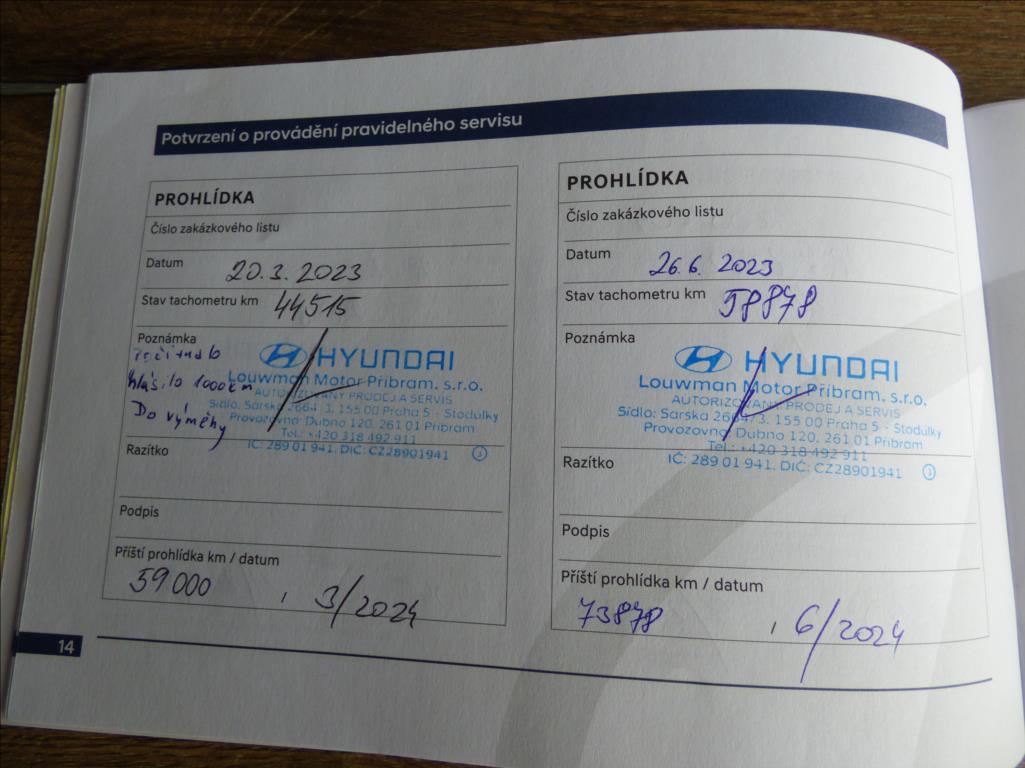 Potvrzení o provádění pravidelného servisu
PROHLÍDKA
Číslo zakázkového listu
Datum 20.3.2023
Stav tachometru km 44515
Poznámka
hlásilo 1000km
Do výměny
HYUNDAI
Louwman Motor Příbram, s.r.o.
AUTORIZOVANÝ PRODEJ A SERVIS
Sídlo: Sárská 2664/3, 155 00 Praha 5 - Stodůlky
Provozovna: Dubno 120, 261 01 Příbram
Tel.: +420 318 492 911
IČ: 289 01 941, DIČ: CZ28901941
Razítko
Podpis
Příští prohlídka km / datum
59000 , 3/2024
PROHLÍDKA
Číslo zakázkového listu
Datum 26.6.2023
Stav tachometru km 58878
Poznámka
HYUNDAI
Louwman Motor Příbram, s.r.o.
AUTORIZOVANÝ PRODEJ A SERVIS
Sídlo: Sárská 2664/3, 155 00 Praha 5 - Stodůlky
Provozovna: Dubno 120, 261 01 Příbram
Tel.: +420 318 492 911
IČ: 289 01 941, DIČ: CZ28901941
Razítko
Podpis
Příští prohlídka km / datum
73878 , 6/2024
14